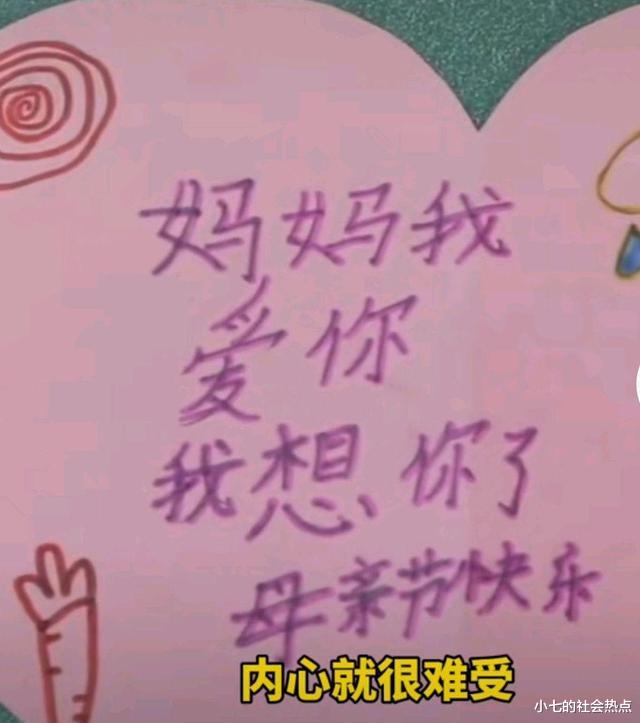 妈妈我
爱你
我想你了
母亲节快乐
内心就很难受
小七的社会热点